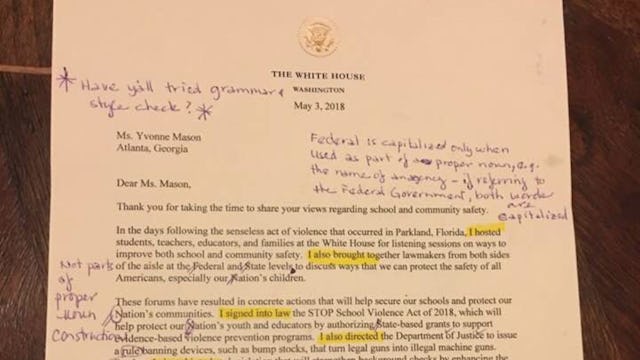 THE WHITE HOUSE
WASHINGTON
May 3, 2018
* Have y'all tried grammar &
style check? *
Ms. Yvonne Mason
Atlanta, Georgia
Federal is capitalized only when
used as part of a proper noun, e.g.
the name of an agency - if referring to
the Federal Government, both words
are
capitalized
Dear Ms. Mason,
Thank you for taking the time to share your views regarding school and community safety.
In the days following the senseless act of violence that occurred in Parkland, Florida, I hosted
students, teachers, educators, and families at the White House for listening sessions on ways to
improve both school and community safety. I also brought together lawmakers from both sides
of the aisle at the Federal and State levels to discuss ways that we can protect the safety of all
Americans, especially our Nation's children.
Not parts
of
proper
noun
construction
These forums have resulted in concrete actions that will help secure our schools and protect our
Nation's communities. I signed into law the STOP School Violence Act of 2018, which will
help protect our Nation's youth and educators by authorizing State-based grants to support
evidence-based violence prevention programs. I also directed the Department of Justice to issue
a rule banning devices, such as bump stocks, that turn legal guns into illegal machine guns.
background checks by enhancing the